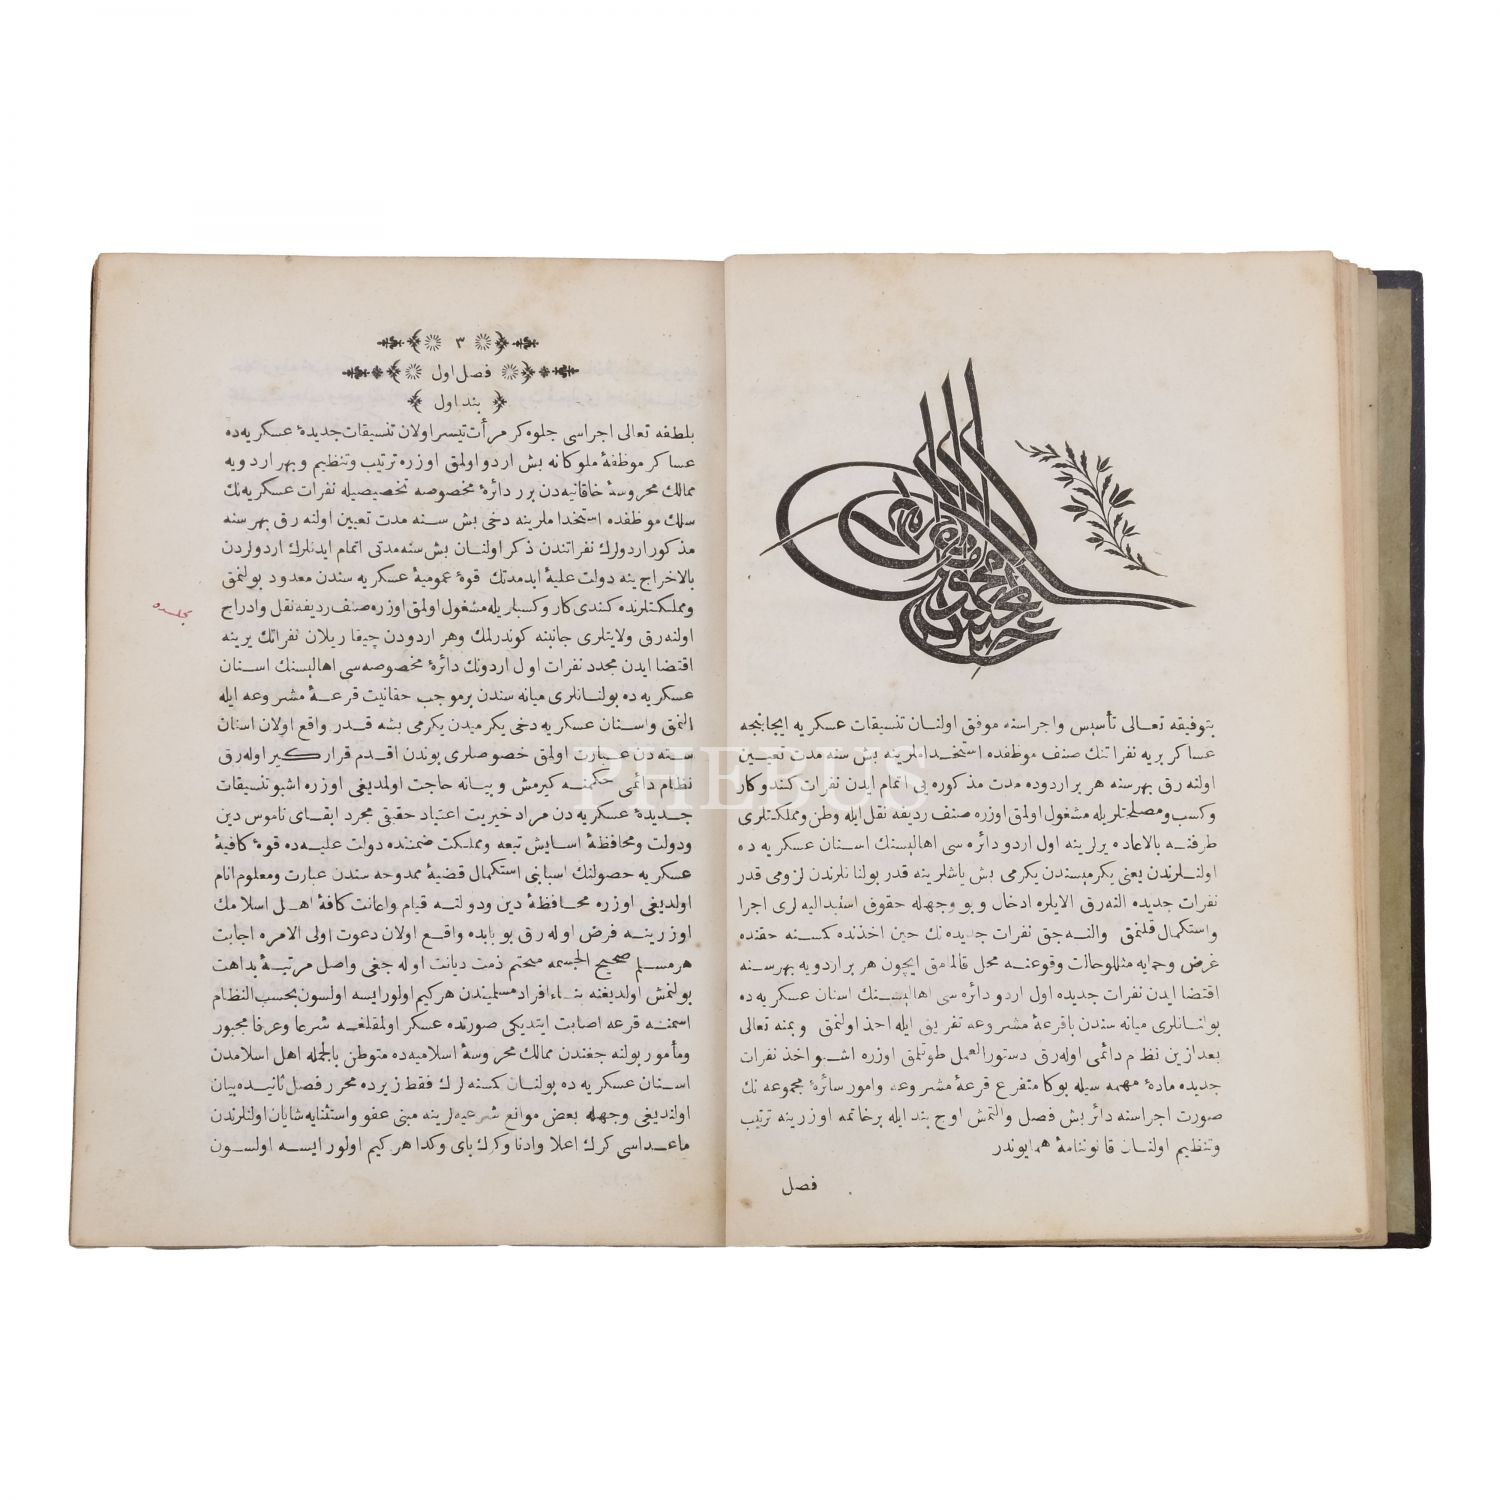 بتوفيقه تعالى تأسيس واجراسنه موفق اولنان تنسيقات عسكريه ايجابنجه
عساكر بريه نفراتنك صنف موظفده استخداملرينه بش سنه مدت تعيين
اولنه رق بهر سنه هر براردوده مدت مذكوره يى اتمام ايدن نفرات كندوكار
وكسب ومصلحتلريله مشغول اولمق اوزره صنف رديفه نقل ايله وطن ومملكتلرى
طرفنه بالاعاده يرلرينه اول اردو دائره سى اهاليسنك اسنان عسكريه ده
اولنلرندن يعنى يكرميسندن يكرمى بش ياشلرينه قدر بولنانلرندن لزومى قدر
نفرات جديده النه رق الايلره ادخال وبو وجهله حقوق استبداليه لرى اجرا
واستكمال قلنمق والنه جق نفرات جديده نك حين اخذنده كمسنه حقنده
غرض وحمايه مثللو حالات وقوعنه محل قالمامق ايچون هر براردويه بهر سنه
اقتضا ايدن نفرات جديده اول اردو دائره سى اهاليسنك اسنان عسكريه ده
بولنانلرى ميانه سندن با قرعهٔ مشروعه تفريق ايله اخذ اولنمق وبمنه تعالى
بعدازين نظام دائمى اوله رق دستور العمل طوتلمق اوزره اشبو اخذ نفرات
جديده مادهٔ مهمه سيله بوكا متفرع قرعهٔ مشروعه وامور سائرهٔ مجموعه نك
صورت اجراسنه دائر بش فصل والتمش اوچ بند ايله بر خاتمه اوزرينه ترتيب
وتنظيم اولنان قانوننامهٔ همايوندر
فصل
٣
فصل اول
بند اول
بلطفه تعالى اجراسى جلوه كر مرأت تيسر اولان تنسيقات جديدهٔ عسكريه ده
عساكر موظفهٔ ملوكانه بش اردو اولمق اوزره ترتيب وتنظيم وبهر اردويه
ممالك محروسهٔ خاقانيه دن برر دائرهٔ مخصوصه تخصيصيله نفرات عسكريه نك
سلك موظفده استخداملرينه دخى بش سنه مدت تعيين اولنه رق بهر سنه
مذكور اردولرك نفراتندن ذكر اولنان بش سنه مدتى اتمام ايدنلرك اردولردن
بالاخراج ينه دولت عليهٔ ابدمدتك قوهٔ عموميهٔ عسكريه سندن معدود بولنمق
ومملكتلرنده كندى كار وكسبلريله مشغول اولمق اوزره صنف رديفه نقل وادراج
اولنه رق ولايتلرى جانبنه كوندرلمك وهر اردودن چيقاريلان نفراتك يرينه
اقتضا ايدن مجدد نفرات اول اردونك دائرهٔ مخصوصه سى اهاليسنك اسنان
عسكريه ده بولنانلرى ميانه سندن برموجب حقانيت قرعهٔ مشروعه ايله
النمق واسنان عسكريه دخى يكرميدن يكرمى بشه قدر واقع اولان اسنان
سته دن عبارت اولمق خصوصلرى بوندن اقدم قراركير اوله رق
نظام دائمى حكمنه كيرمش وبيانه حاجت اولمديغى اوزره اشبو تنسيقات
جديدهٔ عسكريه دن مراد خيريت اعتياد حقيقى مجرد ابقاى ناموس دين
ودولت ومحافظهٔ اسايش تبعه ومملكت ضمننده دولت عليه ده قوهٔ كافيهٔ
عسكريه حصولنك اسبابنى استكمال قضيهٔ ممدوحه سندن عبارت ومعلوم انام
اولديغى اوزره محافظهٔ دين ودولته قيام واعانت كافهٔ اهل اسلامك
اوزرينه فرض اوله رق بوبابده واقع اولان دعوت اولى الامره اجابت
هر مسلم صحيح الجسمه متحتم ذمت ديانت اوله جغى واصل مرتبهٔ بداهت
بولنمش اولديغنه بناء افراد مسلميندن هر كيم اولور ايسه اولسون بحسب النظام
اسمنه قرعه اصابت ايتديكى صورتده عسكر اولمقلغه شرعا وعرفا مجبور
ومأمور بولنه جغندن ممالك محروسهٔ اسلاميه ده متوطن بالجمله اهل اسلامدن
اسنان عسكريه ده بولنان كمسنه لرك فقط زيرده محرر فصل ثانيده بيان
اولنديغى وجهله بعض موانع شرعيه لرينه مبنى عفو واستثنايه شايان اولنلرندن
ماعداسى كرك اعلا وادنا وكرك باى وكدا هر كيم اولور ايسه اولسون
PHEBUS